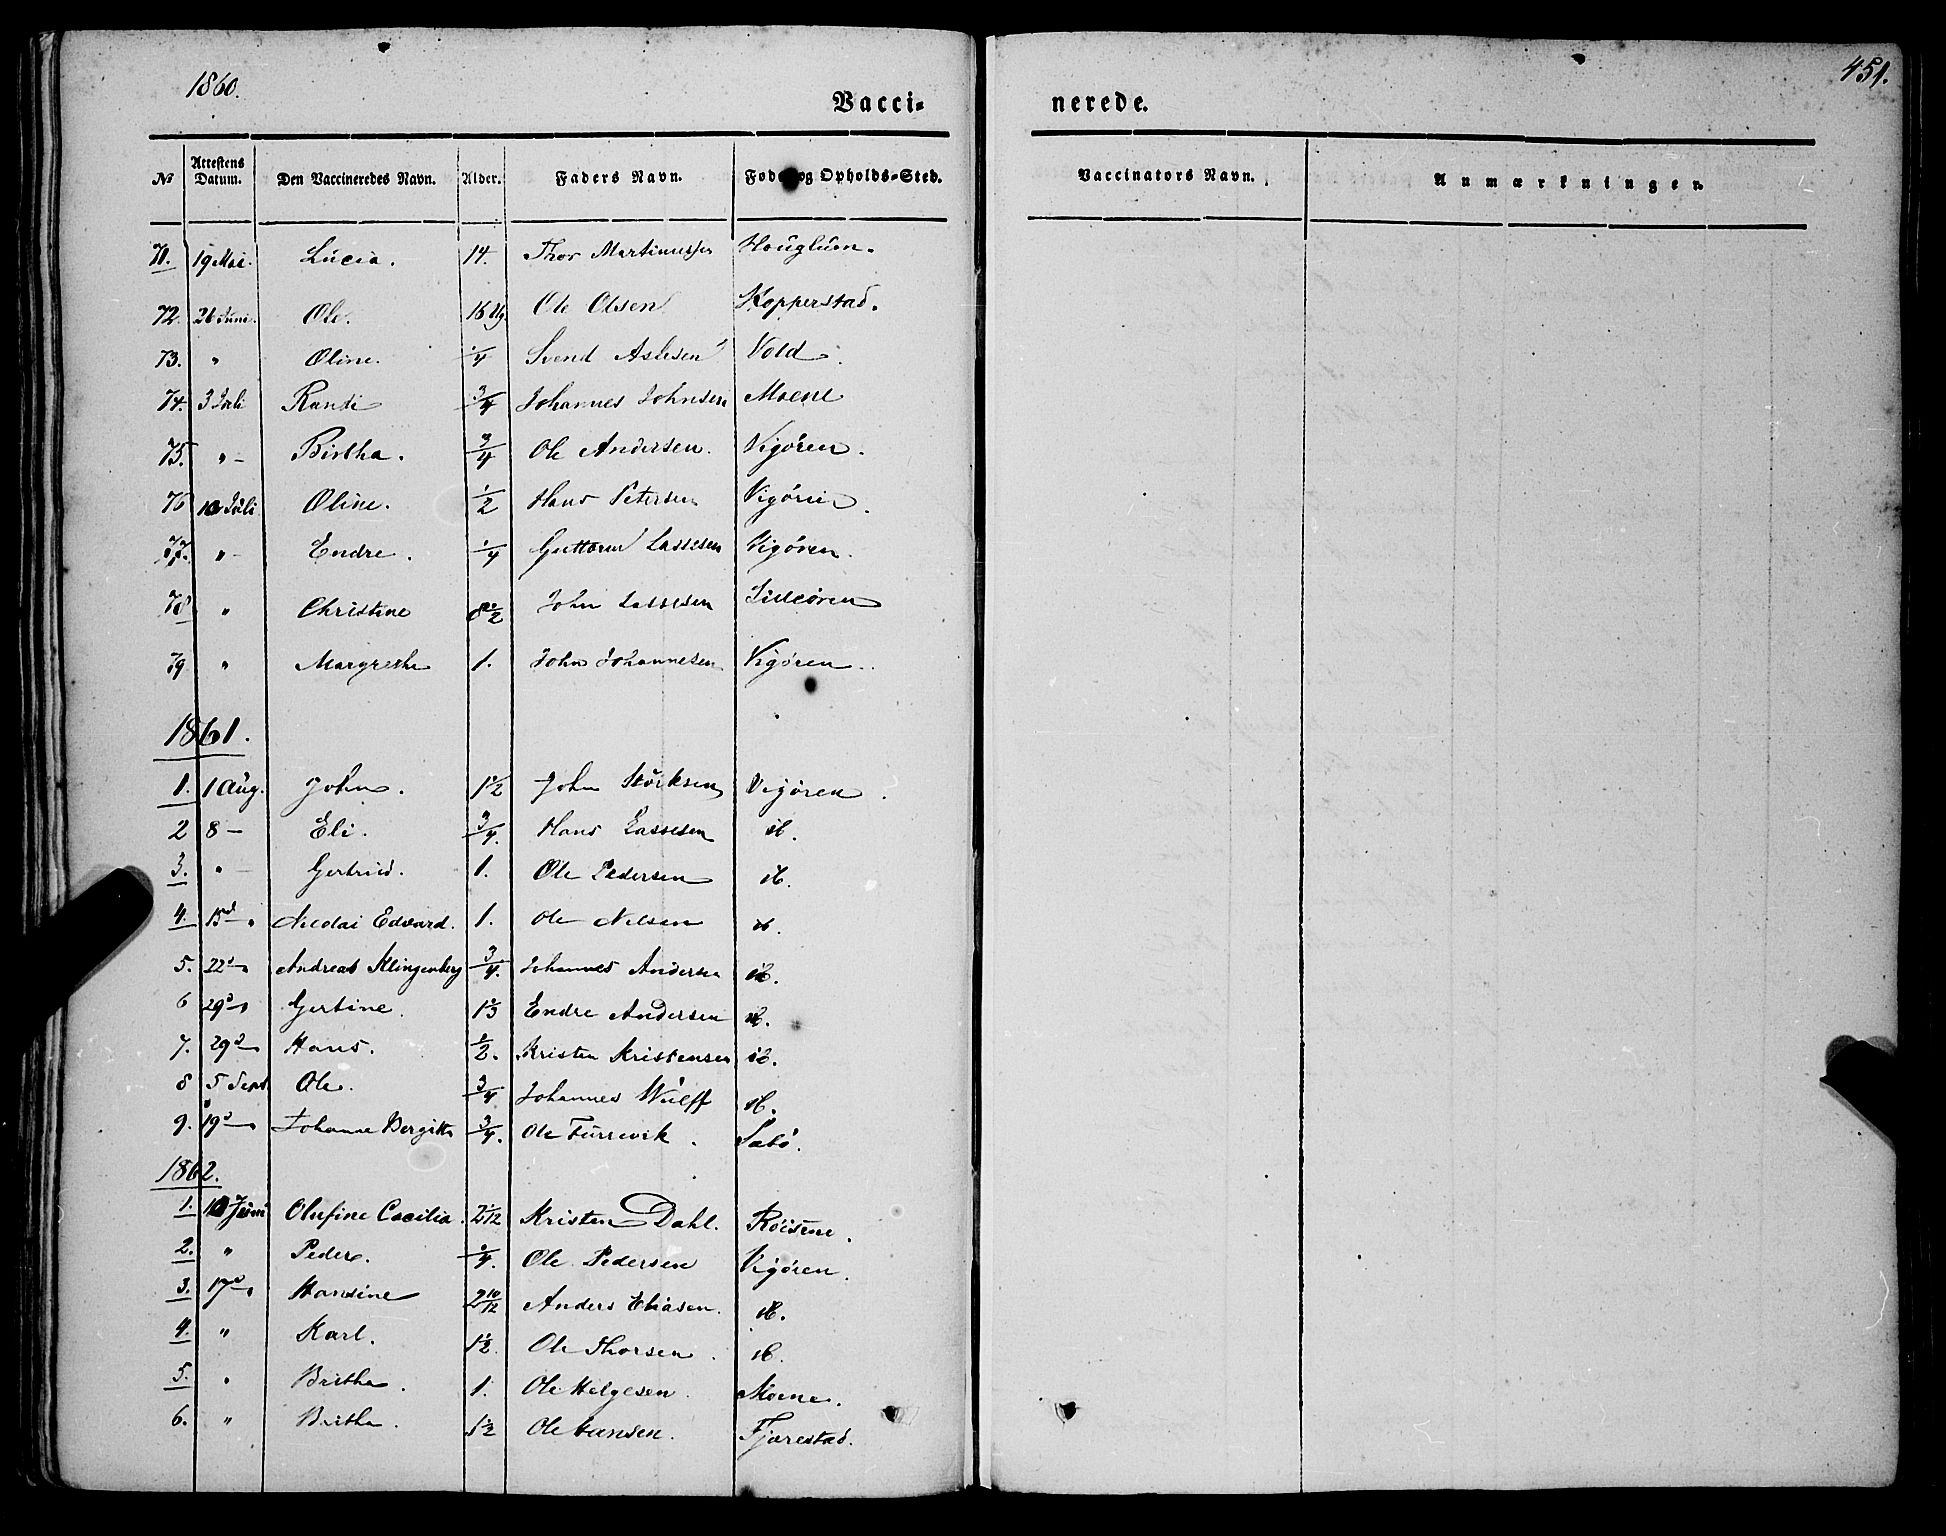 1860.
451.
Vacci-
nerede.
No Attestens Datum. Den Vaccineredes Navn. Alder. Faders Navn. Føde- og Opholds-Sted. Vaccinators Navn. Anmærkninger.
71. 19 Mai. Lucia. 14. Thor Houglum.
72. 26 Juni. Ole. 16 Ole Olsen Kopperstad.
73. " Oline. 1/4 Svend Aslesen Vold.
74. 3 Juli Randi 3/4 Johannes Johnsen Moene
75. "- Birtha. 3/4 Ole Andersen. Vigøren.
76 10 Juli Oline. 1/2 Hans Petersen Vigøren.
77. "- Endre. 1/4 Guttorm Lassesen Vigøren.
78 " Christine John Lassesen
79 " Margrethe 1. John Johannesen Vigøren.
1861.
1. 1 Aug. John. 1 1/2 John Størksen Vigøren.
2 8 - Eli. 3/4. Hans Lassesen ib.
3. " - Gertrud. 1. Ole Pedersen ib.
4. 15d " Nicolai Edvard. 1. Ole Nilsen ib.
5. 22d " Andreas Klingenberg 3/4. Johannes Andersen ib.
6 29d " Gertine. 1 1/3 Endre Andersen ib.
7. 29d " Hans. 1/2. Kristen Kristensen ib.
8 5 Sept Ole. 3/4 Johannes Wulff ib.
9. 19d " Johanne Bergitte 3/4. Ole Furrevik. Sæbø.
1862.
1. 10 Juni Olufine Cacilia. 2 1/12 Kristen Dahl.
2. " Peder. 1/4. Ole Pedersen Vigøren.
3. 17d " Hansine 2 10/12 Anders Eliasen. ib.
4. " Karl. 1 1/2. Ole Thorsen. ib.
5. " Britha. 1. Ole Helgesen. Moene.
6. " Britha. 1 1/2 Ole Hansen. Fjørestad.